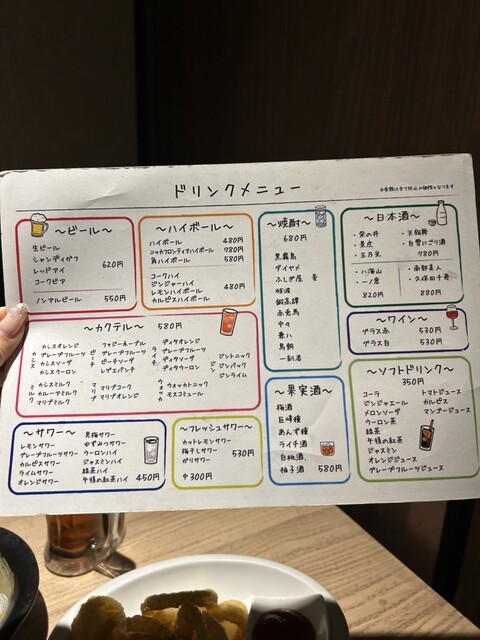 ドリンクメニュー
～ビール～
生ビール
シャンディガフ
レッドアイ
コークビア
620円
ノンアルビール 550円
～ハイボール～
ハイボール 480円
ニッカフロンティアハイボール 780円
角ハイボール 580円
コークハイ
ジンジャーハイ
レモンハイボール
カルピスハイボール
480円
～焼酎～
680円
黒霧島
ダイヤメ
ふしぎ屋 麦
赤兎馬
中々
兼八
鳥飼
一刻者
～日本酒～
・栄の井
・景虎
780円
・八海山
・一ノ蔵
820円
・南部美人
・久保田千寿
880円
～ワイン～
グラス赤 530円
グラス白 530円
～カクテル～ 580円
カシス
カシスオレンジ
カシスグレープフルーツ
カシスソーダ
カシスウーロン
ピーチ
ファジーネーブル
グレープフルーツ
ピーチソーダ
レゲエパンチ
ライチ
ディタオレンジ
グレープフルーツ
ディタソーダ
ディタウーロン
ジン
ジントニック
ジンバック
ジンライム
ミルク
カシスミルク
カルーアミルク
マリブミルク
マリブ
マリブコーク
マリブオレンジ
ウォッカ
ウォッカトニック
モスコミュール
～ソフトドリンク～
350円
コーラ
ジンジャエール
メロンソーダ
ウーロン茶
緑茶
午後の紅茶
ジャスミン
オレンジジュース
グレープフルーツジュース
トマトジュース
カルピス
マンゴージュース
～果実酒～
梅酒
巨峰種
あんず種
ライチ酒
白桃酒
柚子酒
580円
～サワー～
レモンサワー
グレープフルーツサワー
カルピスサワー
ライムサワー
オレンジサワー
男梅サワー
ゆずみつサワー
ウーロンハイ
ジャスミンハイ
緑茶ハイ
午後の紅茶ハイ
450円
～フレッシュサワー～
カットレモンサワー
梅干しサワー
ガリサワー
530円
中300円